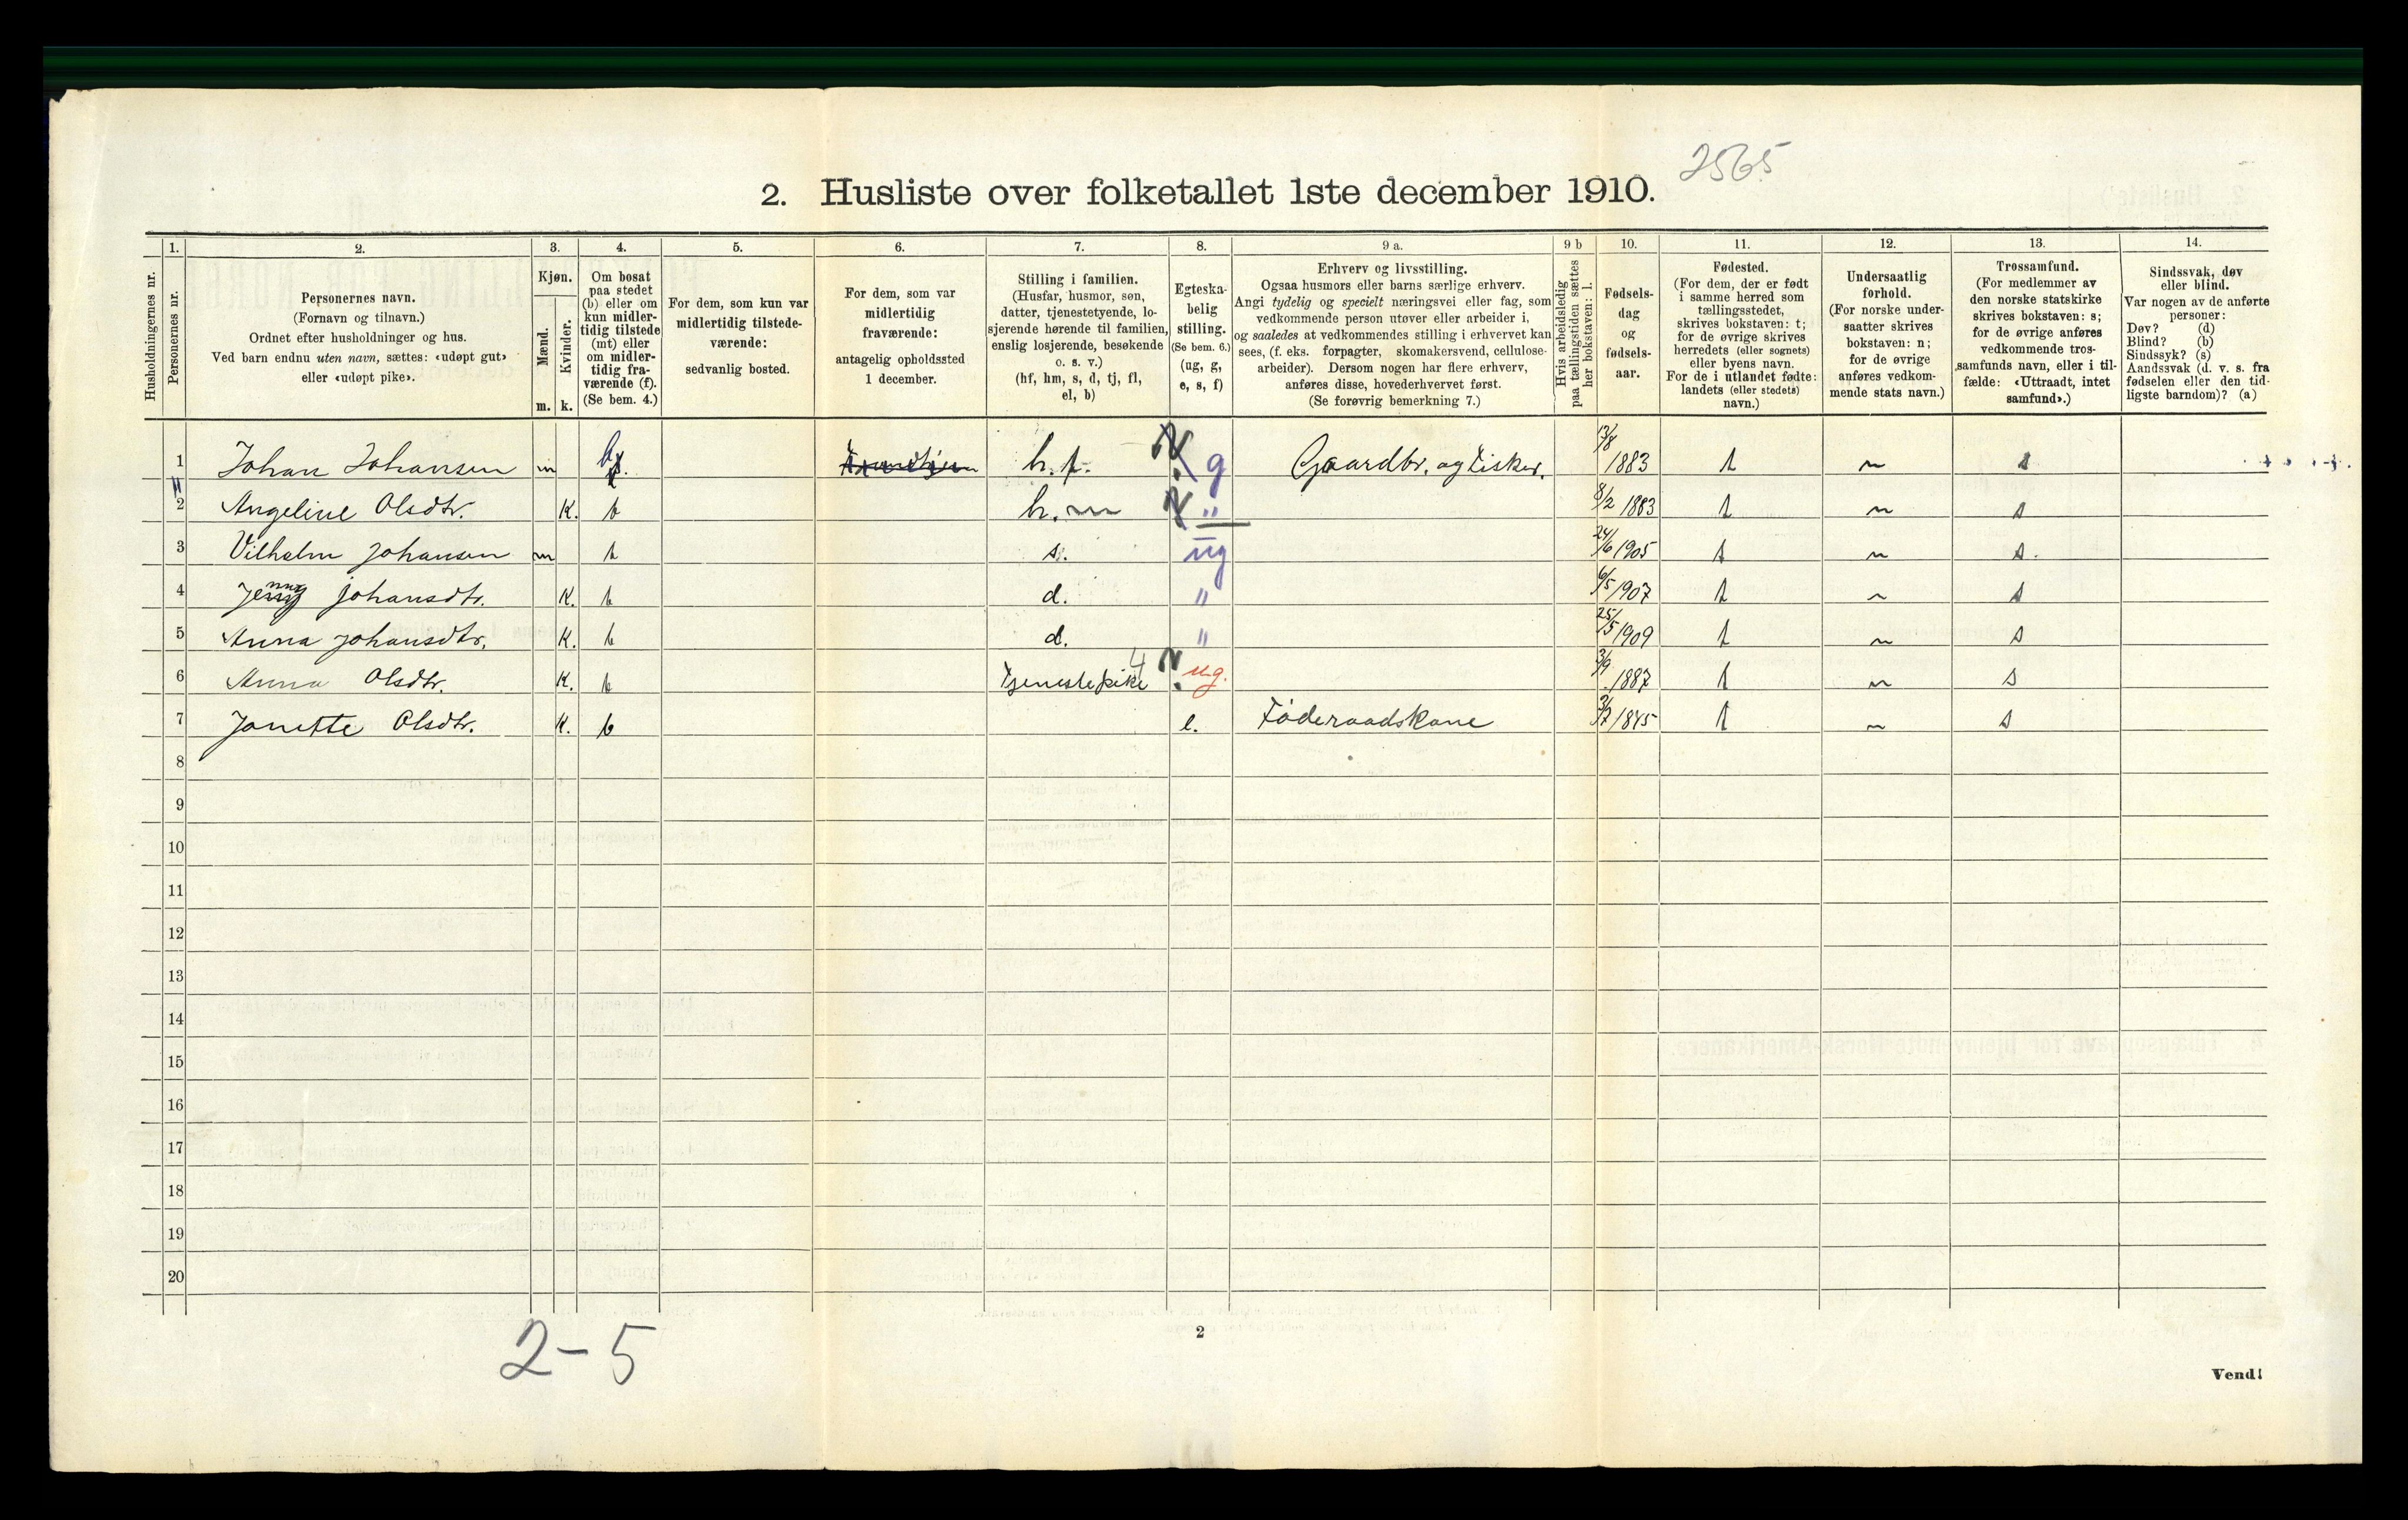 2565
2. Husliste over folketallet 1ste december 1910.
Husholdningernes nr.
1. Personernes nr.
2. Personernes navn. (Fornavn og tilnavn.) Ordnet efter husholdninger og hus. Ved barn endnu uten navn, sættes: «udøpt gut» eller «udøpt pike».
3. Kjøn. Mænd. m. Kvinder. k.
4. Om bosat paa stedet (b) eller om kun midler-tidig tilstede (mt) eller om midler-tidig fra-værende (f). (Se bem. 4.)
5. For dem, som kun var midlertidig tilstede-værende: sedvanlig bosted.
6. For dem, som var midlertidig fraværende: antagelig opholdssted 1 december.
7. Stilling i familien. (Husfar, husmor, søn, datter, tjenestetyende, lo-sjerende hørende til familien, enslig losjerende, besøkende o. s. v.) (hf, hm, s, d, tj, fl, el, b)
8. Egteska-belig stilling. (Se bem. 6.) (ug, g, e, s, f)
9 a. Erhverv og livsstilling. Ogsaa husmors eller barns særlige erhverv. Angi tydelig og specielt næringsvei eller fag, som vedkommende person utøver eller arbeider i, og saaledes at vedkommendes stilling i erhvervet kan sees, (f. eks. forpagter, skomakersvend, cellulose-arbeider). Dersom nogen har flere erhverv, anføres disse, hovederhvervet først. (Se forøvrig bemerkning 7.)
9 b Hvis arbeidsledig paa tællingstiden sættes her bokstaven: l.
10. Fødsels-dag og fødsels-aar.
11. Fødested. (For dem, der er født i samme herred som tællingsstedet, skrives bokstaven: t; for de øvrige skrives herredets (eller sognets) eller byens navn. For de i utlandet fødte: landets (eller stedets) navn.)
12. Undersaatlig forhold. (For norske under-saatter skrives bokstaven: n; for de øvrige anføres vedkom-mende stats navn.)
13. Trossamfund. (For medlemmer av den norske statskirke skrives bokstaven: s; for de øvrige anføres vedkommende tros-samfunds navn, eller i til-fælde: «Uttraadt, intet samfund».)
14. Sindssvak, døv eller blind. Var nogen av de anførte personer: Døv? (d) Blind? (b) Sindssyk? (s) Aandssvak (d. v. s. fra fødselen eller den tid-ligste barndom)? (a)
1 Johan Johansen m b h.f. g Gaardbr. og Fisker. 13/8 1883 t n s
2 Angeline Olsdtr. K. b h.m " 8/2 1883 t n s
3 Vilhelm Johansen m b s. ug 24/6 1905 t n s.
4 Jenny Johansdtr. K. b d. " 6/5 1907 t n s
5 Anna Johansdtr. K. b d. " 25/5 1909 t n s
6 Anna Olsdtr. K. b Tjenestepike 4 ug. 3/9 1887 t n s
7 Jonette Olsdtr. K. b e. Føderaadskone 1845 t n s
8
9
10
11
12
13
14
15
16
17
18
19
20
2-5
2
Vend!